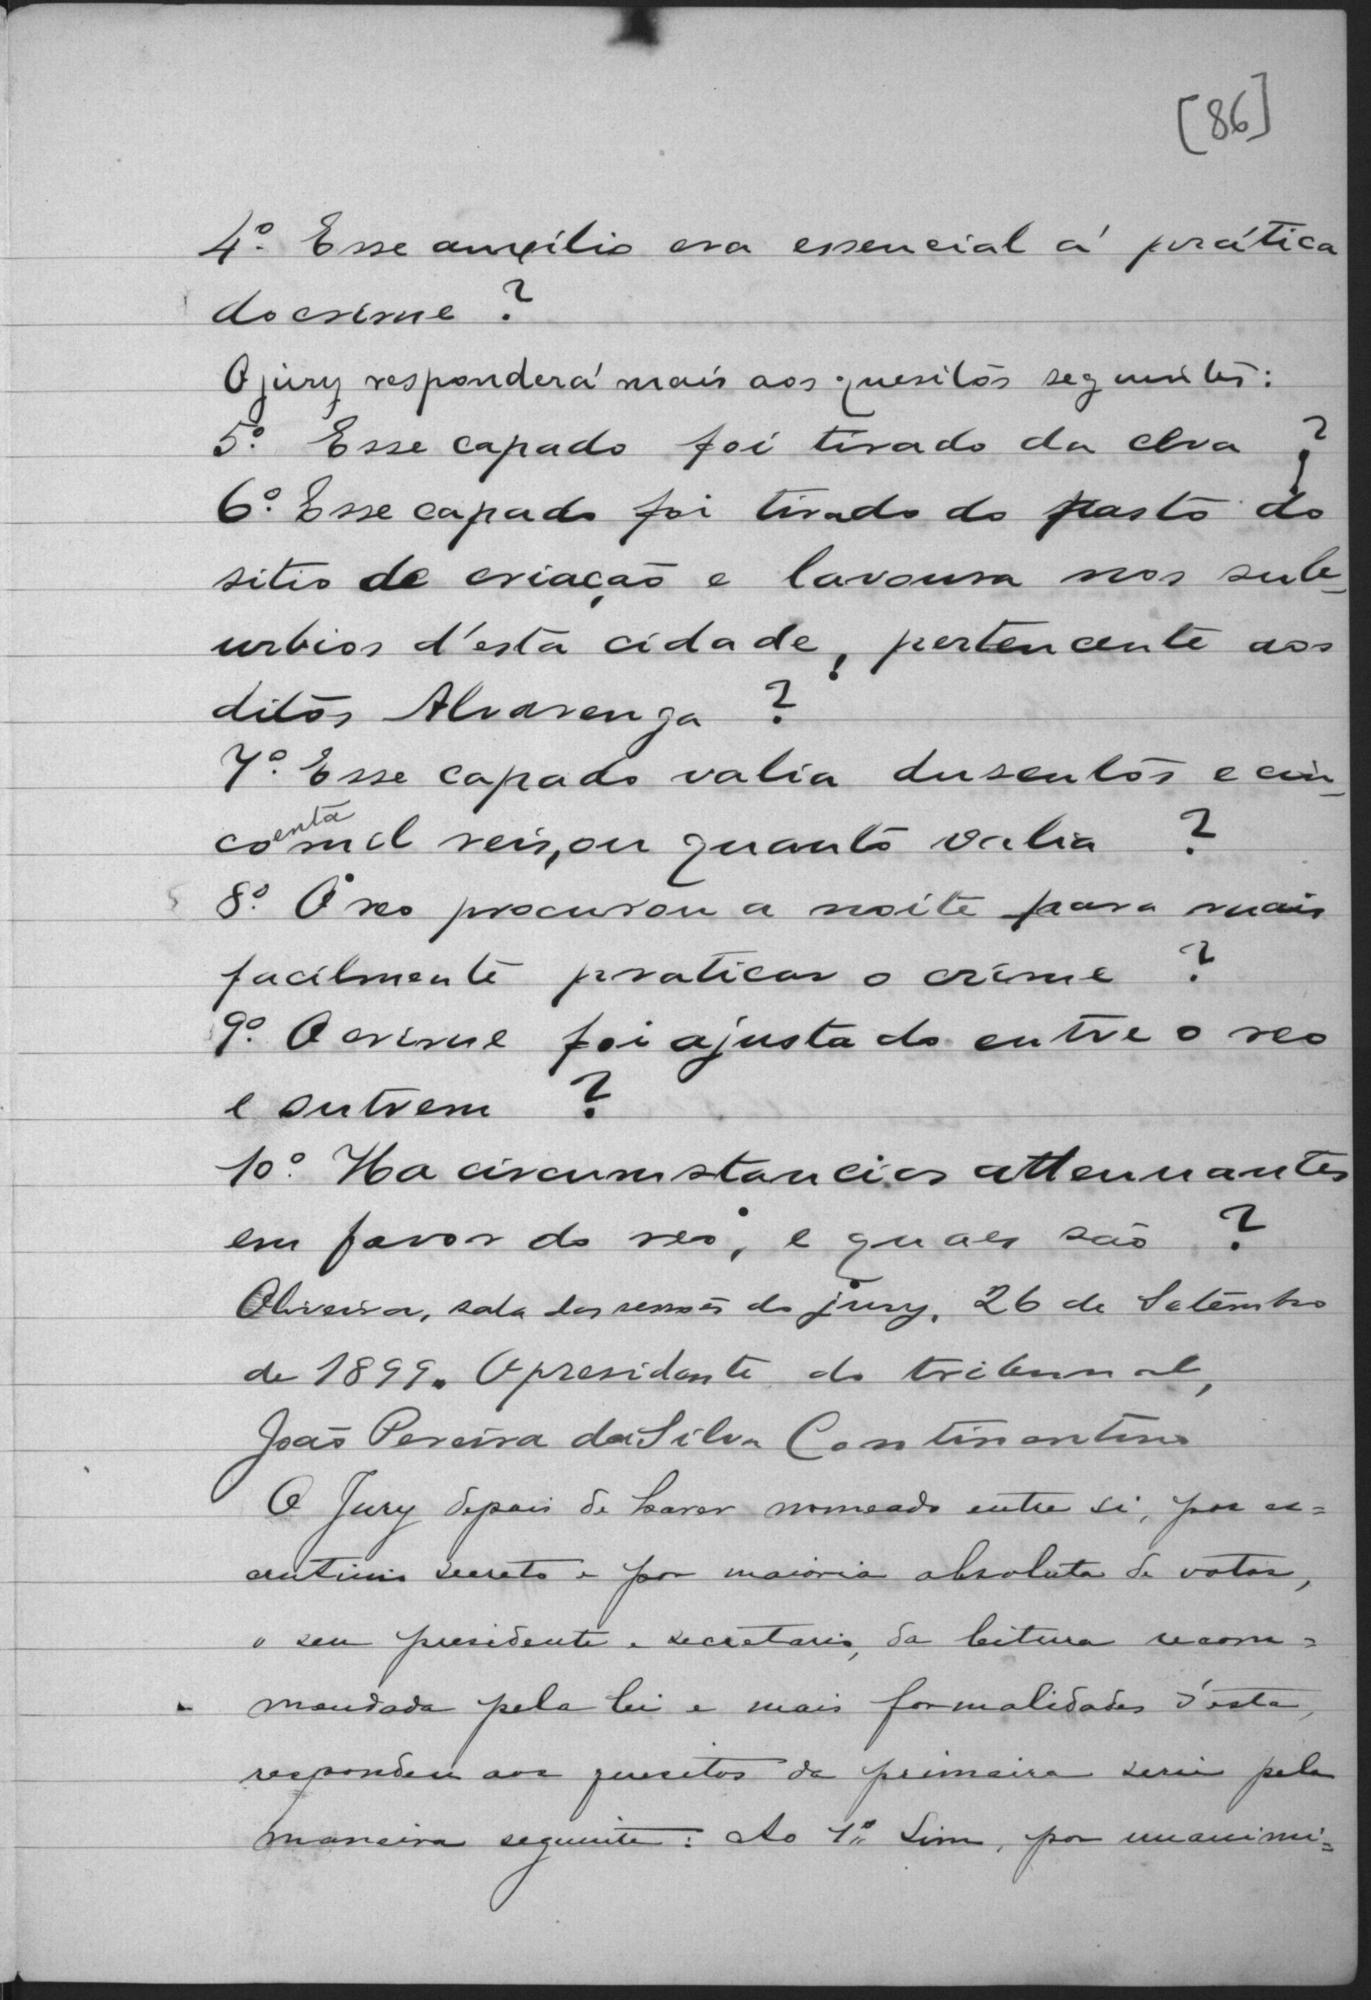 [86]
4º. Esse auxilio era essencial á prática
do crime ?
O jury responderá mais aos quesitos seguintes:
5º. Esse capado foi tirado da ceva ?
6º. Esse capado foi tirado do pasto do
sitio de criação e lavoura nos sub_
urbios d'esta cidade, pertencente aos
ditos Alvarenga ?
7º. Esse capado valia dusentos e cin_
coenta mil reis, ou quanto valia ?
8º. O reo procurou a noite para mais
facilmente praticar o crime ?
9º. O crime foi ajustado entre o reo
e outrem ?
10º. Ha circumstancias attenuantes
em favor do reo, e quaes são ?
Oliveira, sala das sessões do jury, 26 de Setembro
de 1899. O presidente do tribunal,
João Pereira da Silva Continentino
O Jury depois de haver nomeado entre si, por es=
crutinio secreto e por maioria absoluta de votos,
o seu presidente e secretario, da leitura recom=
mendada pela lei e mais formalidades d'esta,
respondeu aos quesitos da primeira serie pela
maneira seguinte: Ao 1º. Sim, por unanimi=